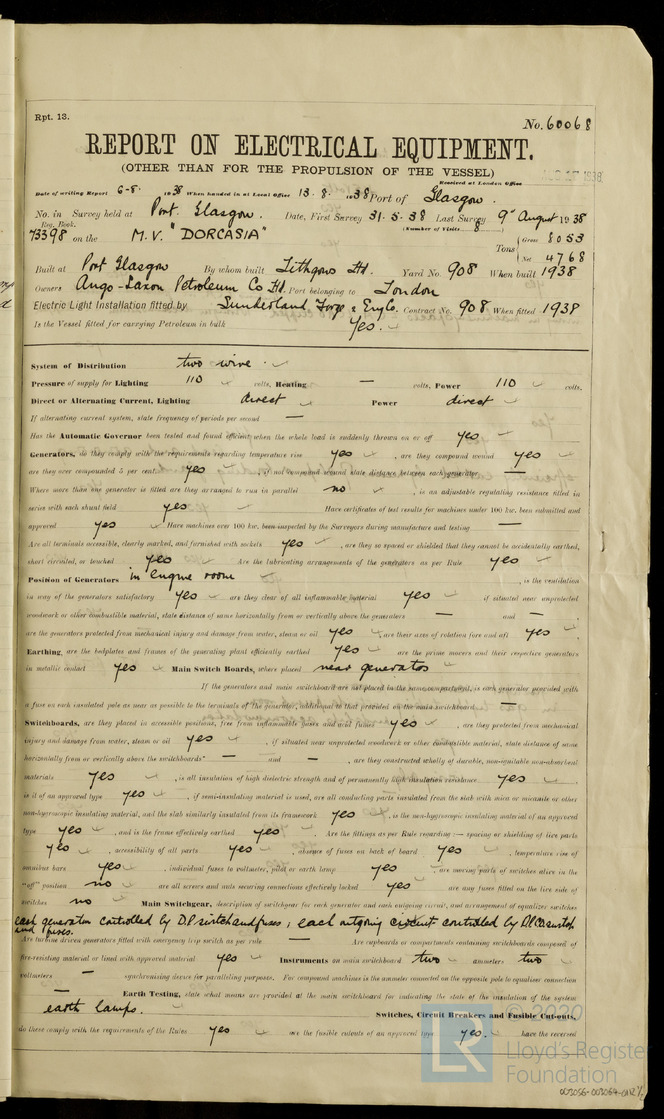 Rpt. 13.
No. 60068
REPORT ON ELECTRICAL EQUIPMENT.
(OTHER THAN FOR THE PROPULSION OF THE VESSEL)
Received at London Office
Date of writing Report 6-8- 1938 When handed in at Local Office 13.8. 1938 Port of Glasgow.
No. in Survey held at Port Glasgow. Date, First Survey 31.5.38 Last Survey 9th August 1938
Reg. Book. (Number of Visits 8)
73398 on the M.V. "DORCASIA" Tons Gross 8053
Net 4768
Built at Port Glasgow By whom built Lithgows Ltd. Yard No. 908 When built 1938
Owners Ango-Saxon Petroleum Co Ltd. Port belonging to London
Electric Light Installation fitted by Sunderland Forge & Eng Co. Contract No. 908 When fitted 1938
Is the Vessel fitted for carrying Petroleum in bulk Yes.
System of Distribution two wire
Pressure of supply for Lighting 110 volts, Heating — volts, Power 110 volts,
Direct or Alternating Current, Lighting direct Power direct
If alternating current system, state frequency of periods per second —
Has the Automatic Governor been tested and found efficient when the whole load is suddenly thrown on or off yes
Generators, do they comply with the requirements regarding temperature rise yes, are they compound wound yes
are they over compounded 5 per cent. yes, if not compound wound state distance between each generator —
Where more than one generator is fitted are they arranged to run in parallel no, is an adjustable regulating resistance fitted in
series with each shunt field yes Have certificates of test results for machines under 100 kw. been submitted and
approved yes Have machines over 100 kw. been inspected by the Surveyors during manufacture and testing —
Are all terminals accessible, clearly marked, and furnished with sockets yes, are they so spaced or shielded that they cannot be accidentally earthed,
short circuited, or touched yes Are the lubricating arrangements of the generators as per Rule yes
Position of Generators in engine room, is the ventilation
in way of the generators satisfactory yes are they clear of all inflammable material yes if situated near unprotected
woodwork or other combustible material, state distance of same horizontally from or vertically above the generators — and —
are the generators protected from mechanical injury and damage from water, steam or oil yes are their axes of rotation fore and aft yes.
Earthing, are the bedplates and frames of the generating plant efficiently earthed yes are the prime movers and their respective generators
in metallic contact yes Main Switch Boards, where placed near generators
If the generators and main switchboard are not placed in the same compartment, is each generator provided with
a fuse on each insulated pole as near as possible to the terminals of the generator, additional to that provided on the main switchboard —
Switchboards, are they placed in accessible positions, free from inflammable gases and acid fumes yes, are they protected from mechanical
injury and damage from water, steam or oil yes, if situated near unprotected woodwork or other combustible material, state distance of same
horizontally from or vertically above the switchboards — and —, are they constructed wholly of durable, non-ignitable non-absorbent
materials yes, is all insulation of high dielectric strength and of permanently high insulation resistance yes
is it of an approved type yes, if semi-insulating material is used, are all conducting parts insulated from the slab with mica or micanite or other
non-hygroscopic insulating material, and the slab similarly insulated from its framework yes, is the non-hygroscopic insulating material of an approved
type yes, and is the frame effectively earthed yes. Are the fittings as per Rule regarding :— spacing or shielding of live parts
yes, accessibility of all parts yes, absence of fuses on back of board yes, temperature rise of
omnibus bars yes, individual fuses to voltmeter, pilot or earth lamp yes, are moving parts of switches alive in the
"off" position no are all screws and nuts securing connections effectively locked yes are any fuses fitted on the live side of
switches no Main Switchgear, description of switchgear for each generator and each outgoing circuit, and arrangement of equalizer switches
each generator controlled by D.P. switch and fuses ; each outgoing circuit controlled by
and fuses.
Are turbine driven generators fitted with emergency trip switch as per rule — Are cupboards or compartments containing switchboards composed of
fire-resisting material or lined with approved material yes Instruments on main switchboard two ammeters two
voltmeters — synchronising devices for paralleling purposes. For compound machines is the ammeter connected on the opposite pole to equaliser connection
— Earth Testing, state what means are provided at the main switchboard for indicating the state of the insulation of the system
earth lamps. Switches, Circuit Breakers and Fusible Cut-outs,
do these comply with the requirements of the Rules yes are the fusible cutouts of an approved type yes. have the reversed
© 2020
LR
Lloyd's Register
Foundation